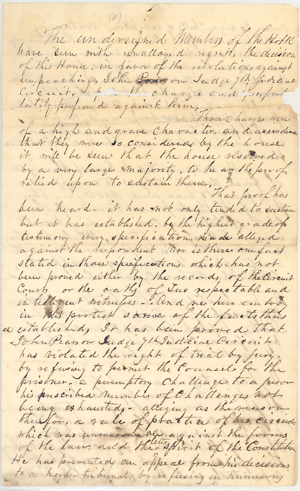 The undersigned Members of the H of R
have seen with unalloyed regret, the decision
of this House, in favor of the resolutions against
impeaching John Pearson Judge 7th Judicial
Circuit, upon the charges and
preferred against him.
These charges were
of a high and grave character, and
that they were so considered by the house
it will be seen that the house resolved
by a very large majority, to hear the proof
relied upon to sustain them.
That proof has
been heard. it has not only tended to sustain
but it has established, by the highest grade of
testimony every specification, made alleged
against the respondent. Nor is there one fact
stated in those specifications, which has not
been proved either by the records of the Circuit
Court, or the oaths of two respectable and
intelligent witnesses. And we here embody
in this protest some of the facts thus
established. It has been proved that
John Pearson Judge 7th Judicial Circuit
has violated the right of trial by jury,
by refusing to permit the Counsel for the
prisoner a peremptory challenge to a juror
his prescribed number of challenges not
being exhausted, alleging as the reason
therefor, a rule of practice of his circuit
which was against the forms
of the law and the spirit of the Constitution
He has prevented an appeal from his decisions
to a higher tribunal, by refusing in numerous